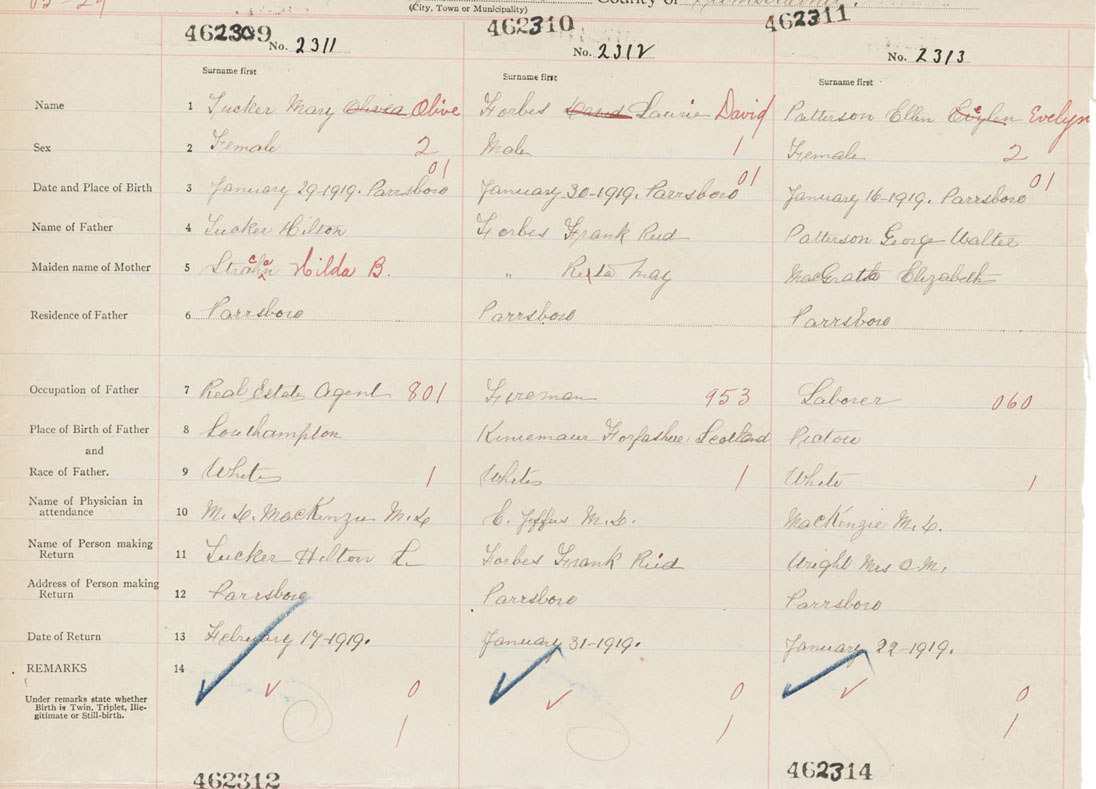 (City, Town or Municipality) County of
462309 462310 462311
No. 2311 No. 2312 No. 2313
Surname first Surname first Surname first
Name 1 Tucker Mary Olivea Olive Forbes David Laurie David Patterson Ellen Evelyn
Sex 2 Female 2 Male 1 Female 2
01 01 01
Date and Place of Birth 3 January 29-1919. Parrsboro January 30-1919. Parrsboro January 16-1919. Parrsboro
Name of Father 4 Tucker Hilton Forbes Frank Reid Patterson George Walter
Maiden name of Mother 5 Hilda B. " Reta May MacGrath Elizabeth
Residence of Father 6 Parrsboro Parrsboro Parrsboro
Occupation of Father 7 Real Estate Agent 801 Fireman 953 Laborer 060
Place of Birth of Father 8 Southampton Forfashire Scotland Pictou
and
Race of Father. 9 White 1 White 1 White 1
Name of Physician in
attendance 10 M.D. MacKenzie M.D. E. Jeffers M.D. MacKenzie M.D.
Name of Person making
Return 11 Tucker Hilton L. Forbes Frank Reid Wright Mrs O.M.
Address of Person making
Return 12 Parrsboro Parrsboro Parrsboro
Date of Return 13 February 17-1919. January 31-1919. January 22-1919.
REMARKS 14
Under remarks state whether
Birth is Twin, Triplet, Ille-
gitimate or Still-birth.
0 0 0
1 1 1
462312 462314